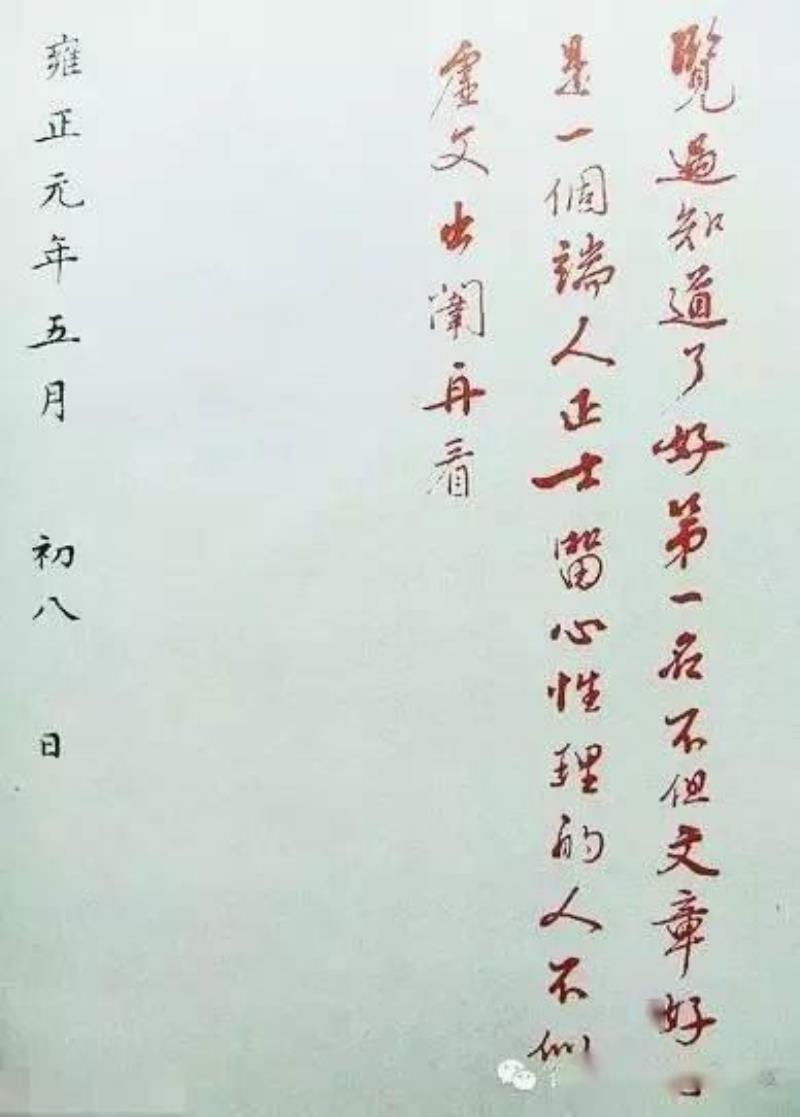 覽過知道了好第一名不但文章好
是一個端人正士留心性理的人不似
虛文出闈再看
雍正元年五月初八日